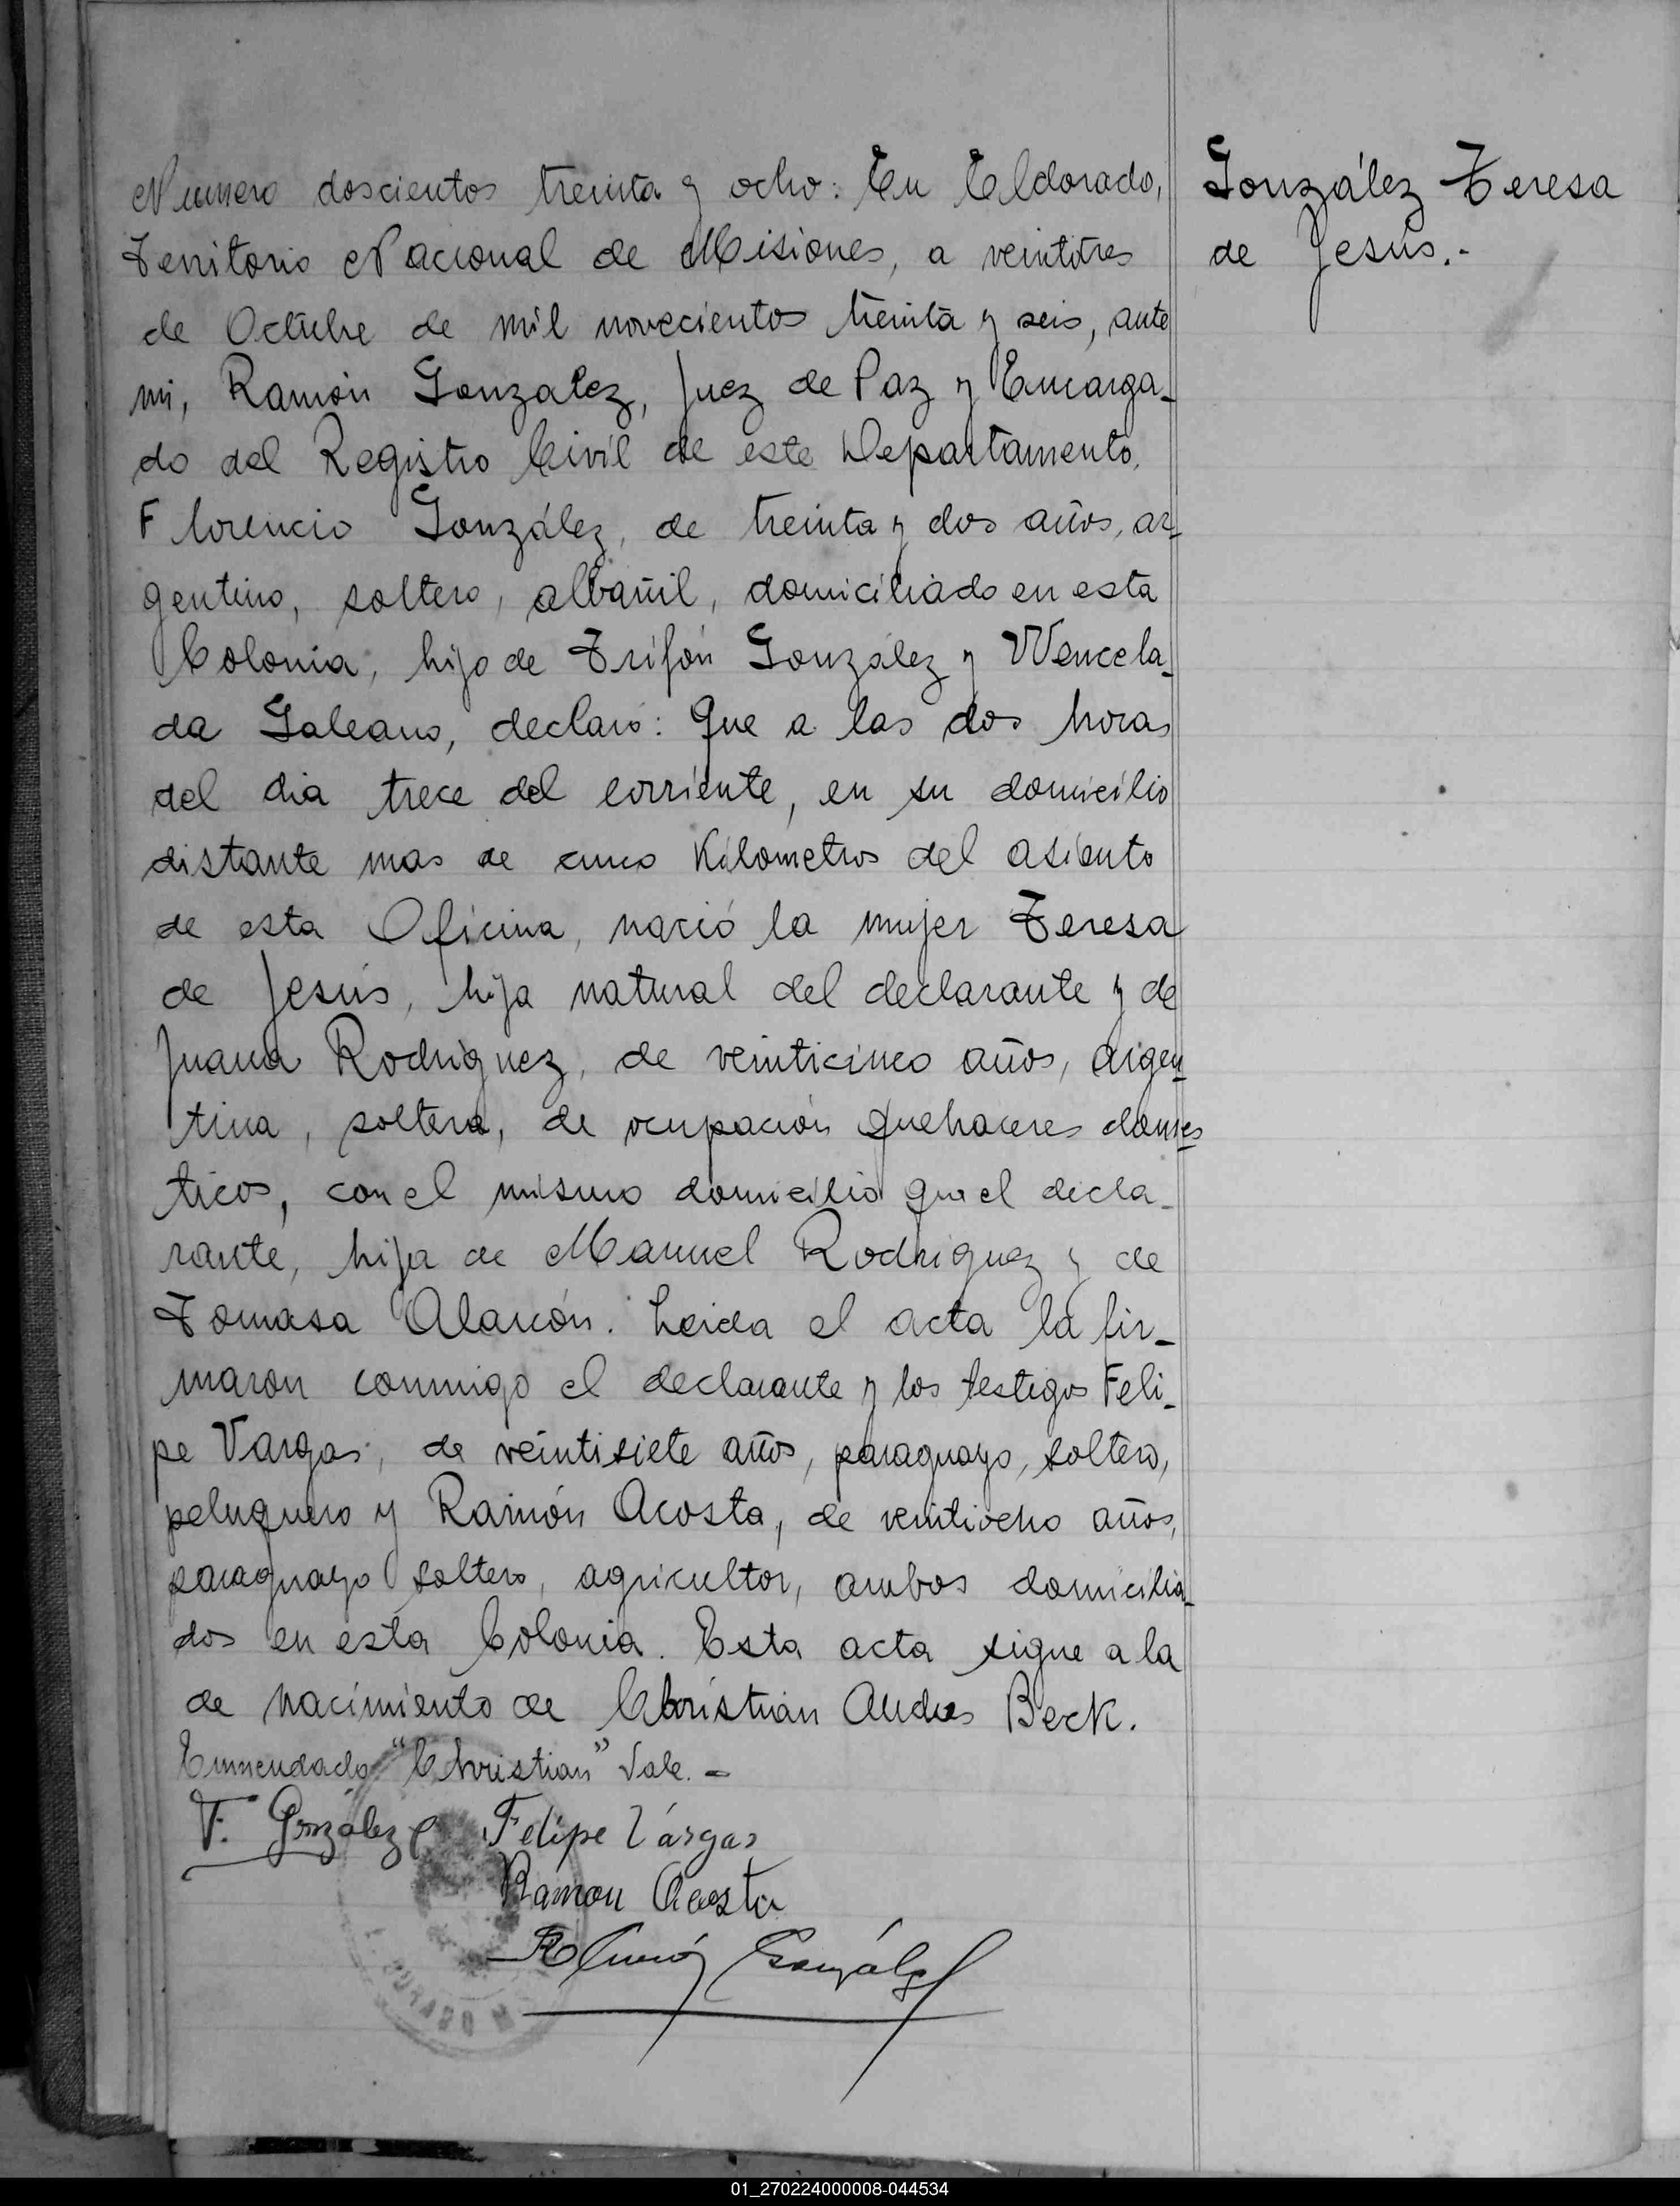 Numero doscientos treinta y ocho: En Eldorado,
Territorio Nacional de Misiones, a veintitres
de Octubre de mil novecientos treinta y seis, ante
mi, Ramón Gonzalez, Juez de Paz y Encarga-
do del Registro Civil de este Departamento,
Florencio González, de treinta y dos años, ar-
gentino, soltero, albañil, domiciliado en esta
Colonia, hijo de Trifón González y Wencela-
da Galeano, declaró: Que a las dos horas
del dia trece del corriente, en su domicilio
distante mas de cinco Kilometros del asiento
de esta Oficina, nació la mujer Teresa
de Jesús, hija natural del declarante y de
Juana Rodriguez, de veinticinco años, argen-
tina, soltera, de ocupación quehaceres domes-
ticos, con el mismo domicilio que el decla-
rante, hija de Manuel Rodriguez y de
Tomasa Alarcón. Leida el acta la fir-
maron conmigo el declarante y los testigos Feli-
pe Vargas, de veintisiete años, paraguayo, soltero,
peluquero y Ramón Acosta, de veintiocho años,
paraguayo soltero, agricultor, ambos domicilia-
dos en esta Colonia. Esta acta sigue a la
de nacimiento de Christian Andres Beck.
Enmendado "Christian" Vale.-
F. González Felipe Várgas
Ramon Acosta
Ramón González
DORADO M
González Teresa
de Jesús.-
01_270224000008-044534